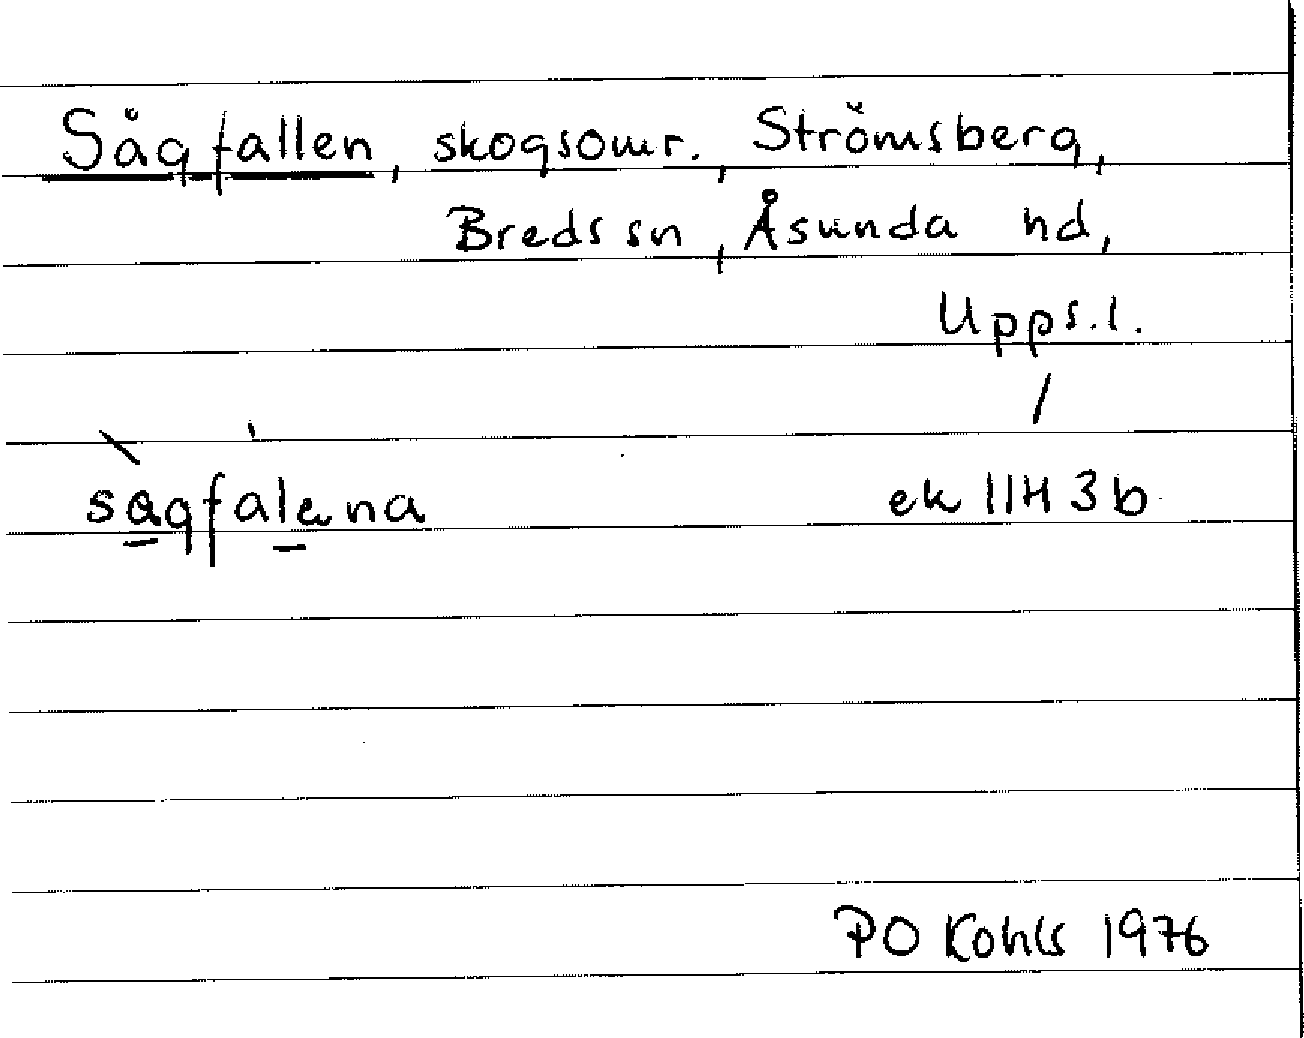 Sågfallen, skogsomr., Strömsberg,
Breds sn, Åsunda hd,
Upps.l.
sagfalena
ek 11H 3b
PO Kohls 1976